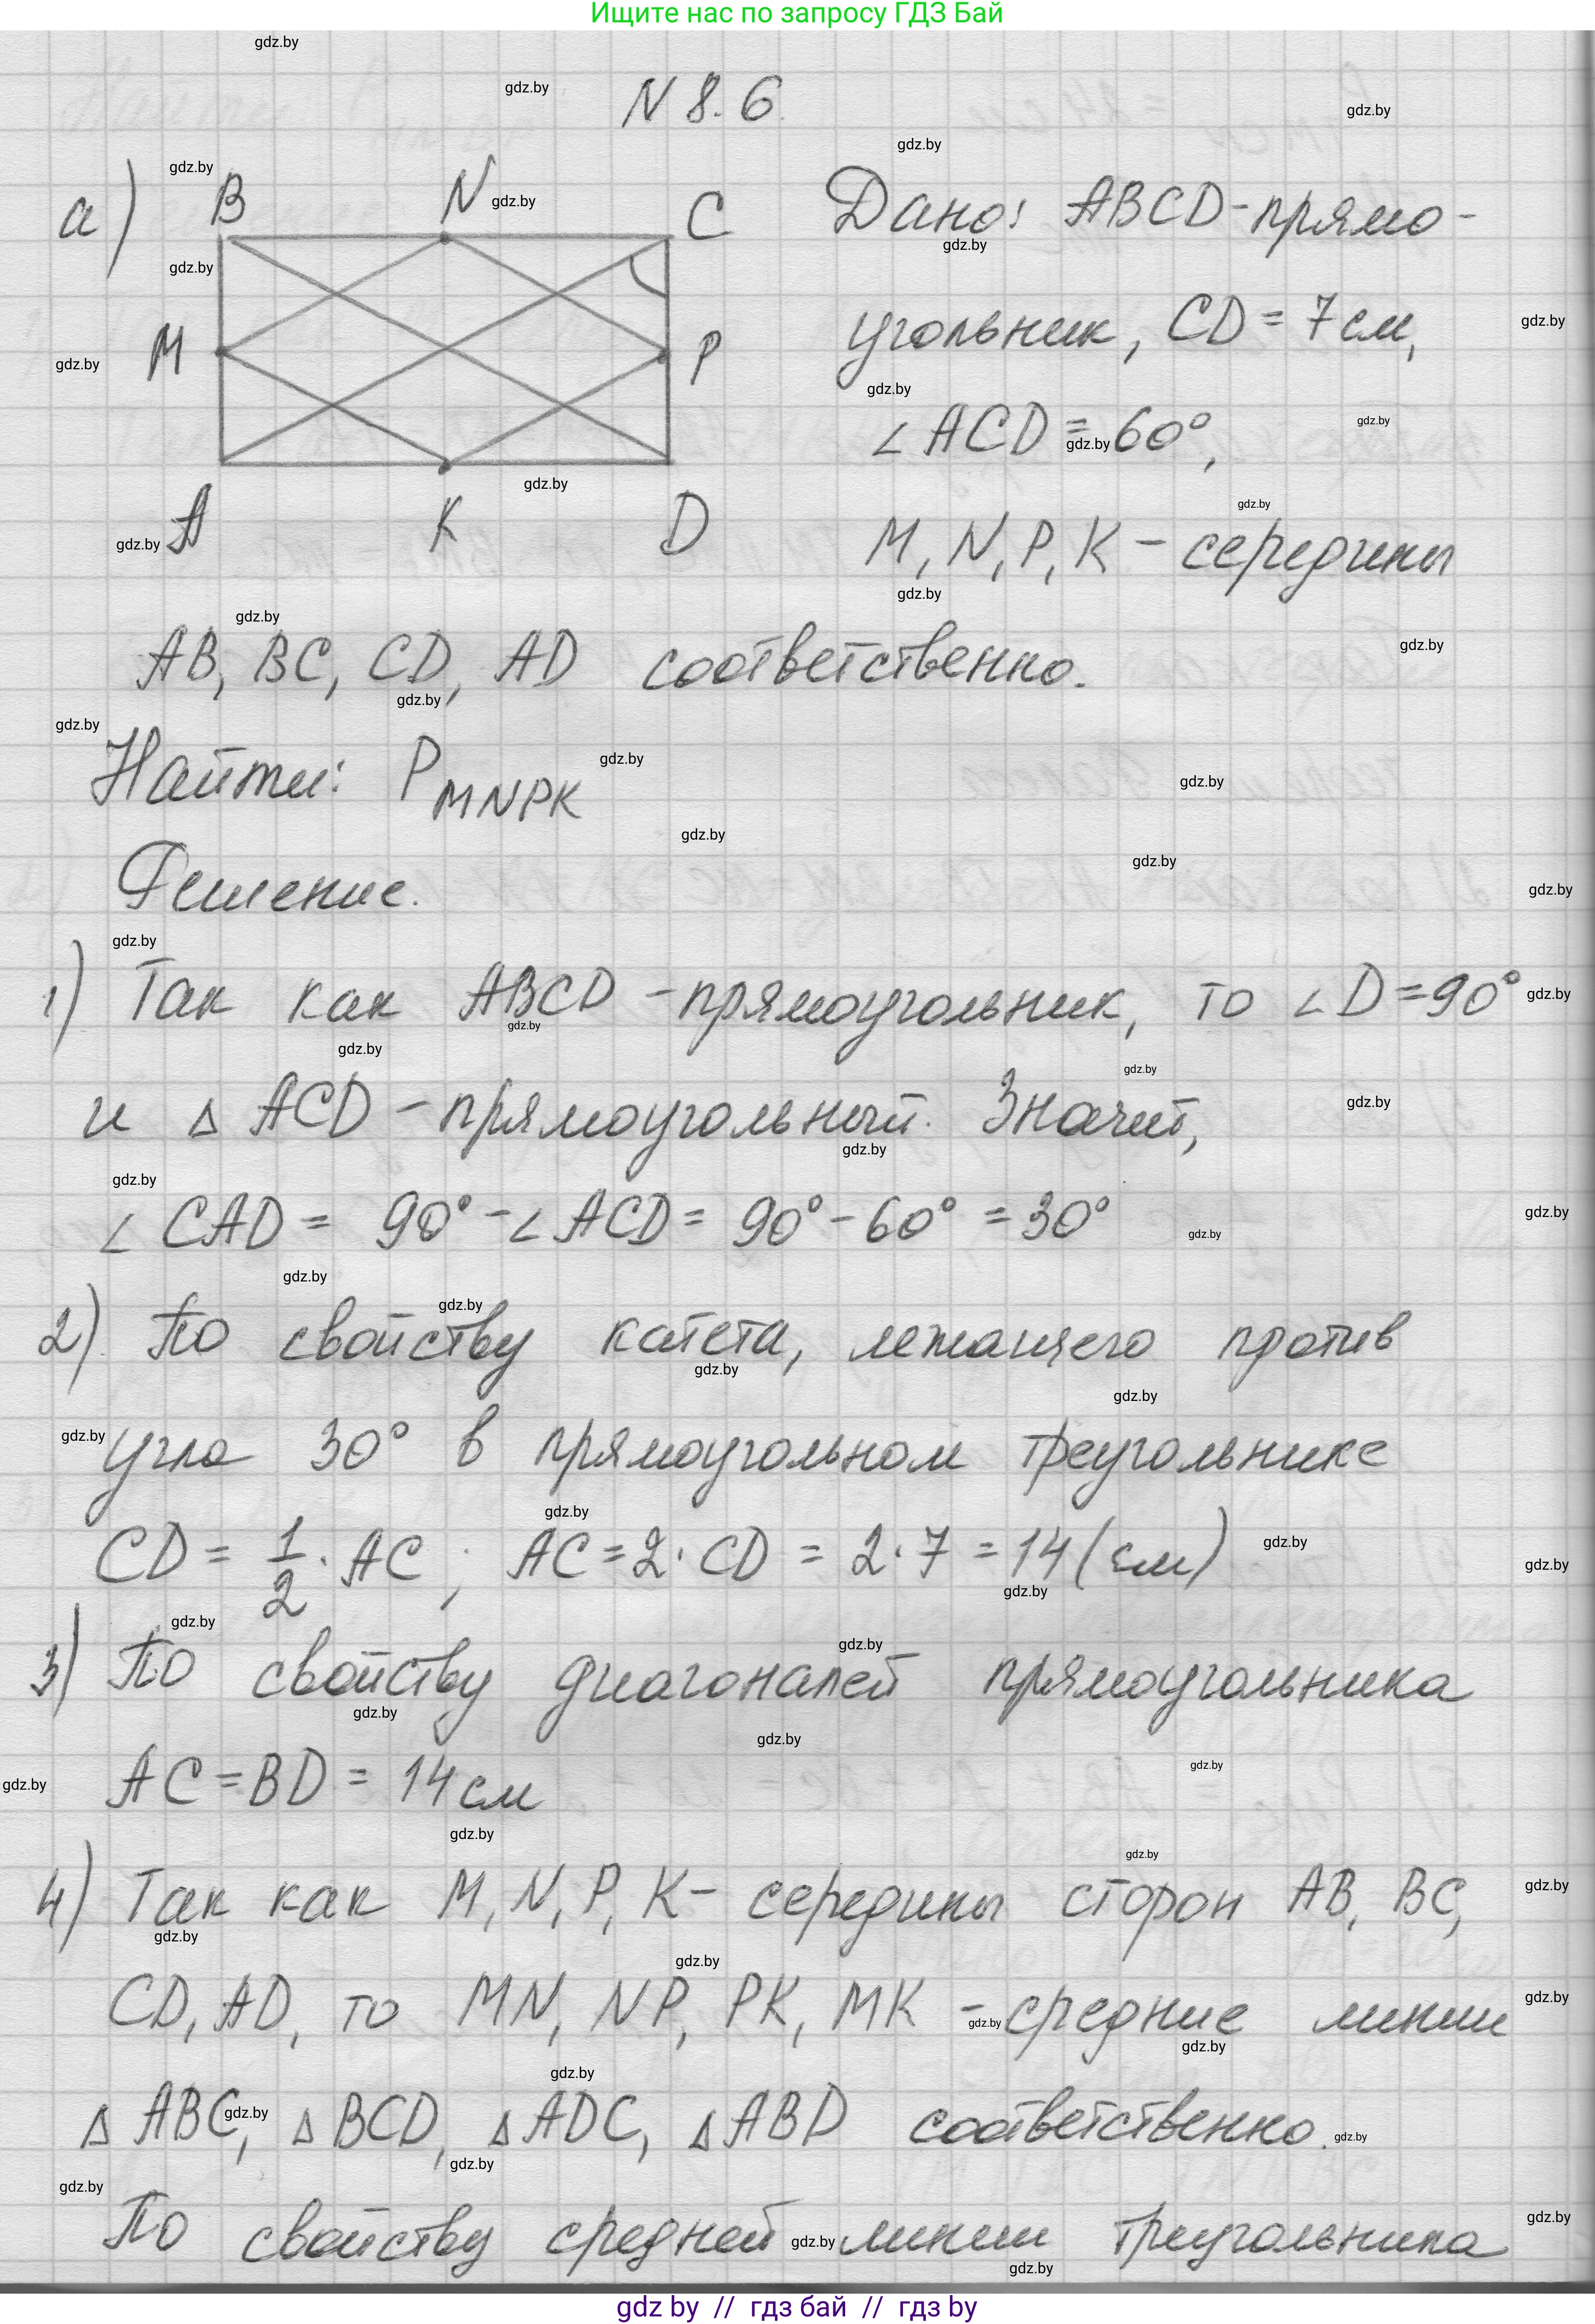 Ищите нас по запросу ГДЗ Бай
N 8.6
а)
B N C
M P
A K D
Дано: ABCD-прямо-
угольник, CD = 7 см,
∠ ACD = 60°,
M, N, P, K - середины
AB, BC, CD, AD соответственно.
Найти: P MNPK
Решение.
1) Так как ABCD - прямоугольник, то ∠ D = 90°
и Δ ACD - прямоугольный. Значит,
∠ CAD = 90° - ∠ ACD = 90° - 60° = 30°
2) По свойству катета, лежащего против
угла 30° в прямоугольном треугольнике
CD = 1/2 · AC ; AC = 2 · CD = 2 · 7 = 14 (см)
3) По свойству диагоналей прямоугольника
AC = BD = 14 см
4) Так как M, N, P, K - середины сторон AB, BC,
CD, AD, то MN, NP, PK, MK - средние линии
Δ ABC, Δ BCD, Δ ADC, Δ ABD соответственно.
По свойству средней линии треугольника
gdz by // гдз бай // гдз by